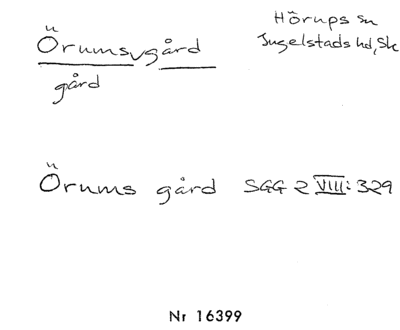 Örums gård
Hörups sn
Jugelstads hd, Sk
gård
Örums gård SGG 2 VIII: 329
Nr 16399